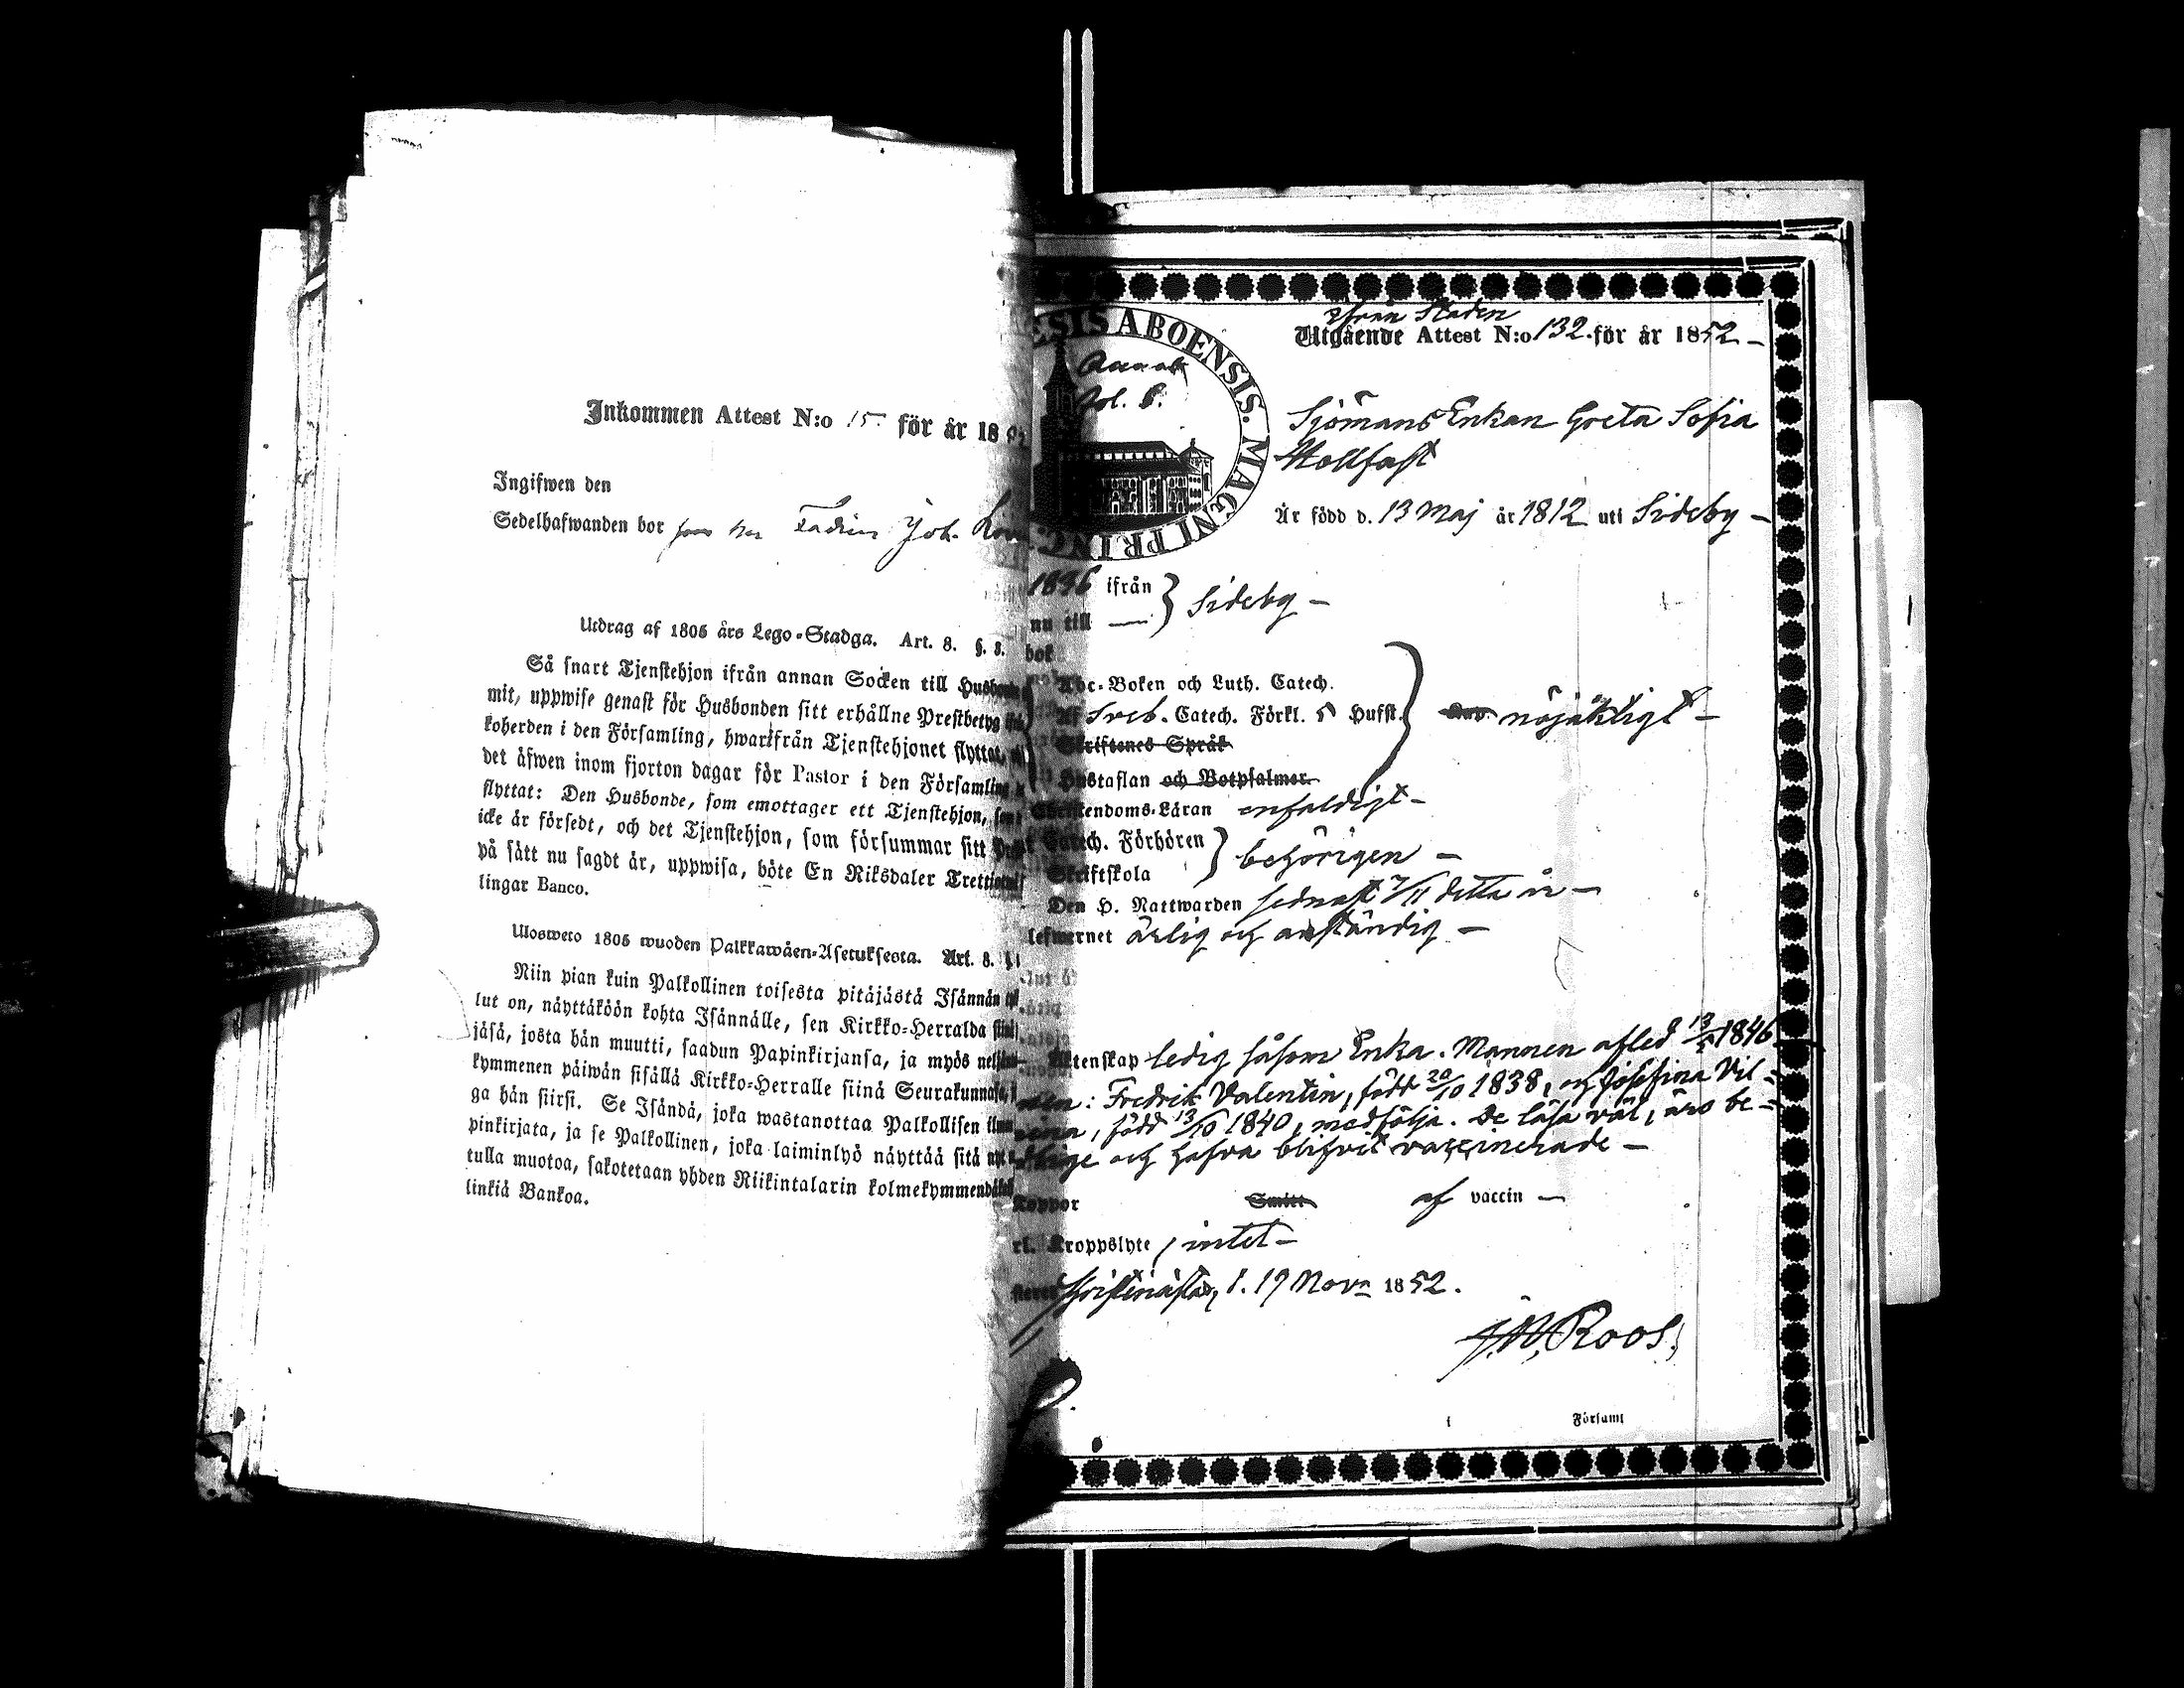 Inkommen Attest N:o 15 för år 18
Ingifwen den
Sedelhafwanden bor Joh.
Utdrag af 1805 års Lego-Stadga. Art. 8. §. 8.
Så snart Tjenstehjon ifrån annan Socken till
mit, uppwise genast för Husbonden sitt erhållne Prestbetyg
koherden i den Församling, hwarifrån Tjenstehjonet flyttat,
det äfwen inom fjorton dagar för Pastor i den Församling
flyttat: Den Husbonde, som emottager ett Tjenstehjon,
icke är försedt, och det Tjenstehjon, som försummar sitt
på sätt nu sagdt är, uppwisa, böte En Riksdaler
lingar Banco.
Ulosweto 1805 wuoden Palkkawäen-Asetuksesta. Art. 8. §
Niin pian kuin Palkollinen toisesta pitäjästä Isännän
lut on, näyttäköön kohta Isännälle, sen Kirkko-Herralda
jäsä, josta hän muutti, saadun Papinkirjansa, ja myös
kymmenen päiwän sisällä Kirkko-Herralle siinä Seurakunnasa,
ga hän siirsi. Se Isändä, joka wastanottaa Palkollisen
pinkirjata, ja se Palkollinen, joka laiminlyö näyttää sitä
tulla muotoa, sakotetaan yhden Riikintalarin
linkiä Bankoa.
ESIS ABOENSIS. MAGNI PRINC.
ifrån Staden
Utgående Attest N:o 132. för år 1852 –
Sjömans Enkan Greta Sofia
Är född d. 13 Maj år 1812 uti Sideby –
1846 ifrån } Sideby –
nu till —
bok
Abc-Boken och Luth. Catech.
Af Sveb. Catech. Förkl. 5 Hufst. } nöjaktigt –
Skriftenes Språk
Hustaflan och Botpsalmer.
Christendoms-Läran enfaldigt –
Catech. Förhören } behörigen –
Skriftskola
Den H. Nattwarden sednast 7/11 detta år –
lefwernet ärlig och anständig –
Äktenskap ledig såsom Enka. Mannen afled 1846
: Fredrik Valentin, född 20/10 1838, och Josefina Vil=
, född 13/10 1840, medfölja. De läsa väl, äro be=
och hafva blifvit vaccinerade –
Koppor Smitt af vaccin —
Kroppslyte , intet –
Christinestad, d. 19 Nov. 1852.
Roos.
i Församl